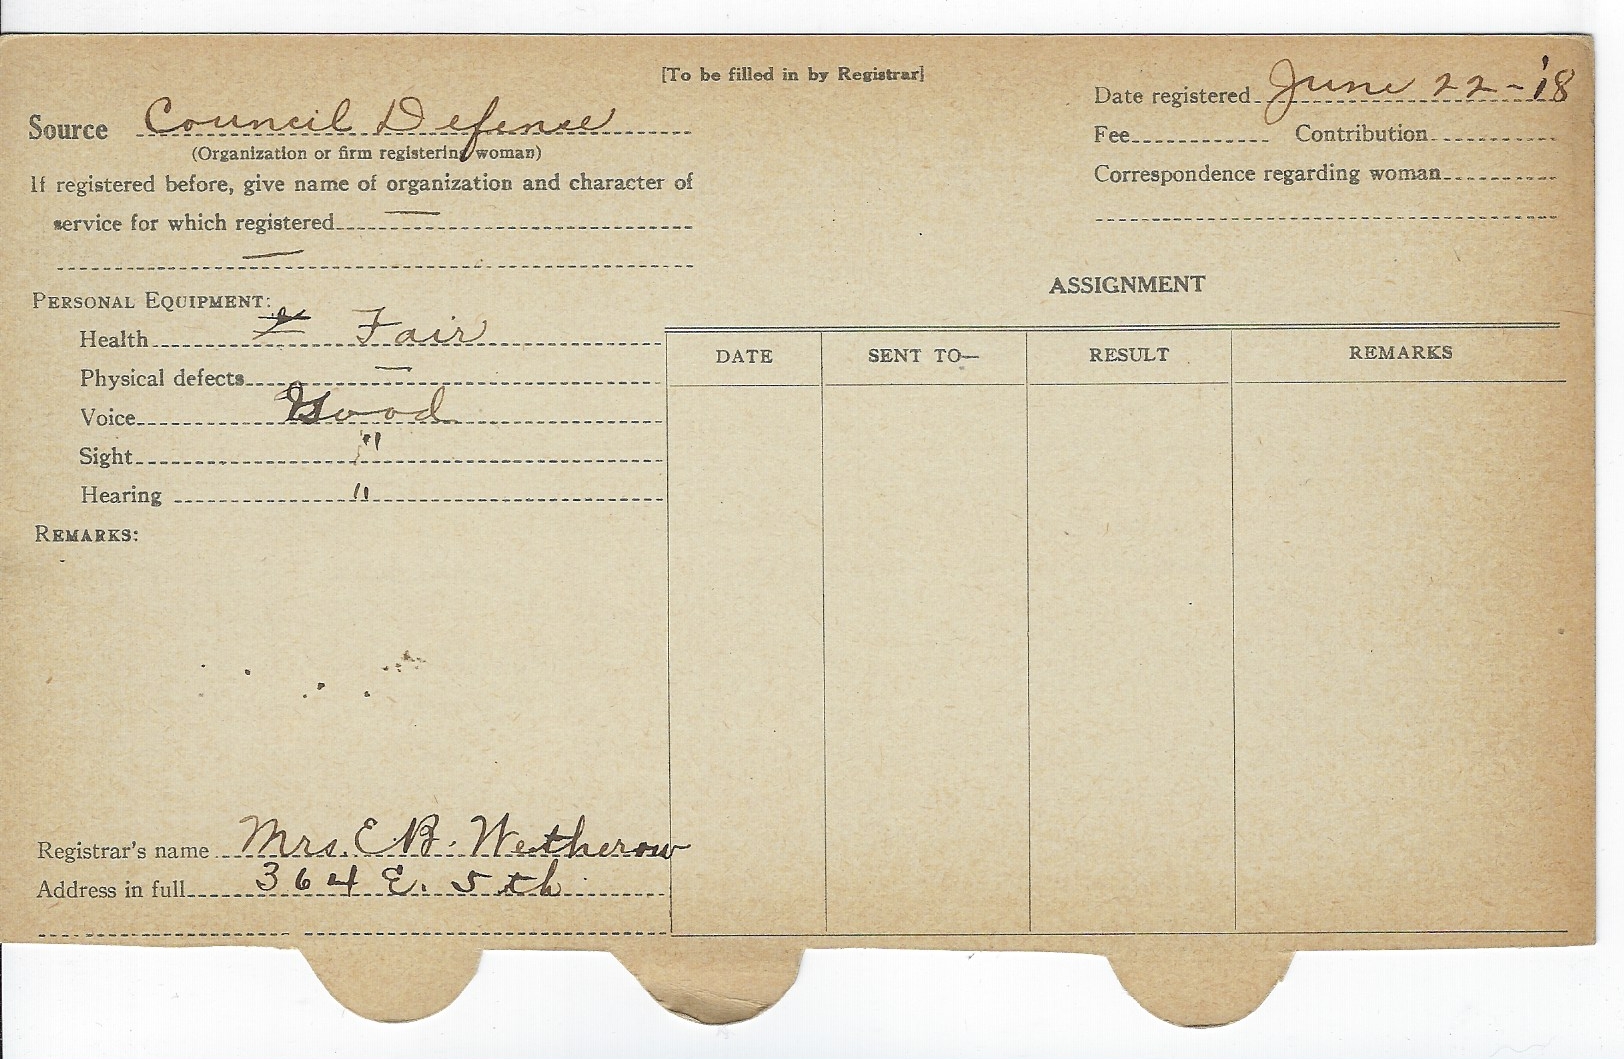 [To be filled in by Registrar]
Date registered June 22-'18
Source Council Defense
(Organization or firm registering woman)
Fee Contribution
If registered before, give name of organization and character of
Correspondence regarding woman
service for which registered —
—
ASSIGNMENT
PERSONAL EQUIPMENT:
Health Fair
DATE SENT TO— RESULT REMARKS
Physical defects —
Voice Good
Sight "
Hearing "
REMARKS:
Registrar's name Mrs. E. B. Wetherow
Address in full 364 E. 5th